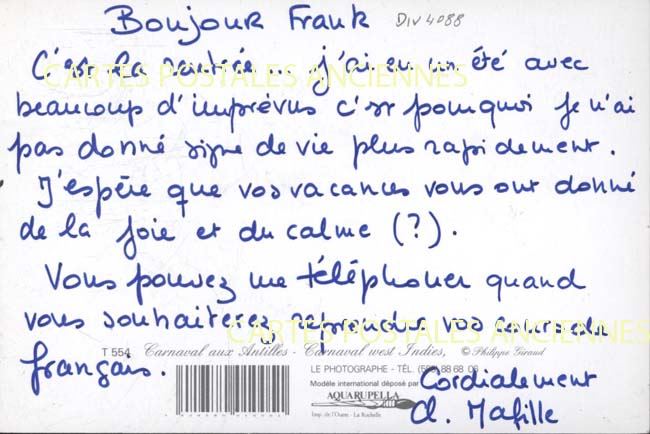 Bonjour Frank DIV 4088
C'est la rentrée... j'ai eu un été avec
CARTES POSTALES ANCIENNES
beaucoup d'imprévus c'est pourquoi je n'ai
pas donné signe de vie plus rapidement.
J'espère que vos vacances vous ont donné
de la joie et du calme (?).
Vous pouvez me téléphoner quand
vous souhaiterez reprendre vos cours de
CARTES POSTALES ANCIENNES
français.
T 554 Carnaval aux Antilles - Carnaval west Indies, © Philippe Giraud
LE PHOTOGRAPHE - TÉL. 88 68 06
Modèle international déposé par
AQUARUPELLA
Imp. de l'Ouest - La Rochelle
Cordialement
Cl. Mafille